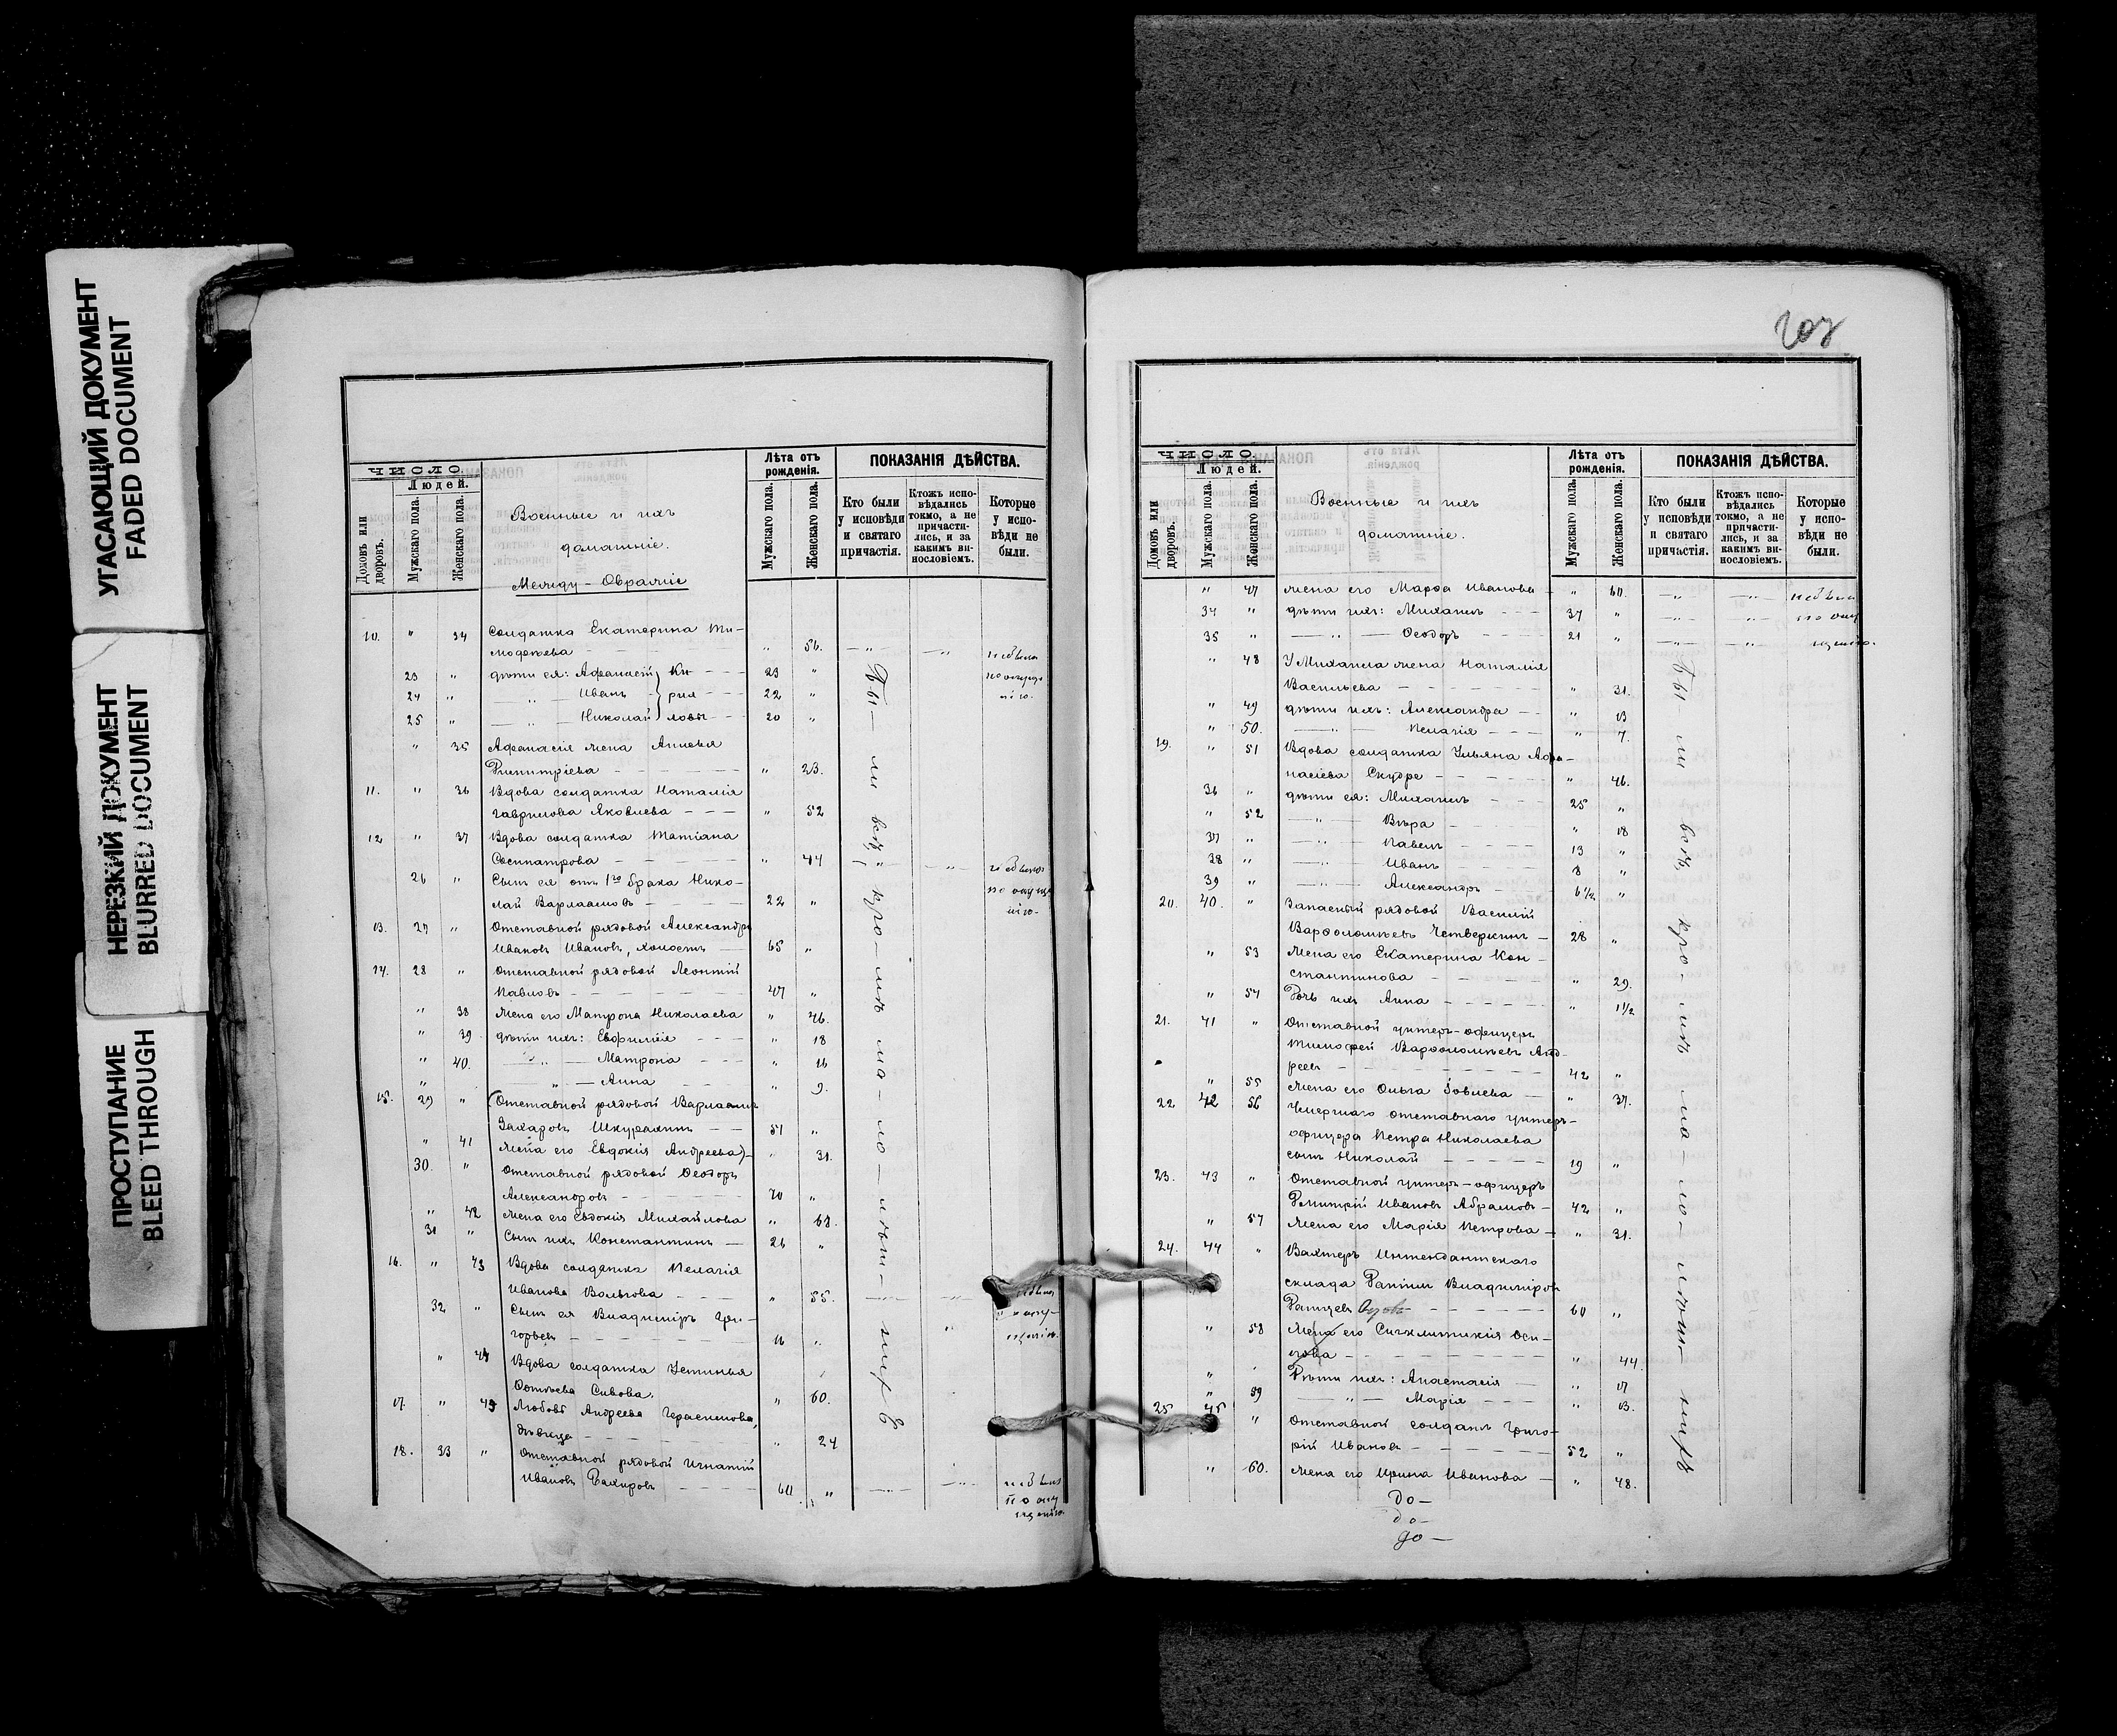 УГАСАЮЩИЙ ДОКУМЕНТ
FADED DOCUMENT
НЕРЕЗКИЙ ДОКУМЕНТ
BLURRED DOCUMENT
ПРОСТУПАНИЕ
BLEED THROUGH
ЧИСЛО
Людей.
Домовъ или дворовъ.
Мужскаго пола.
Женскаго пола.
Военные и ихъ
домашніе.
Лѣта отъ рожденія.
Мужскаго пола.
Женскаго пола.
ПОКАЗАНІЯ ДѢЙСТВА.
Кто были у исповѣди и святаго причастія.
Ктожъ исповѣдались токмо, а не причастились, и за какимъ винословіемъ.
Которые у исповѣди не были.
10. " 34 Солдатка Екатерина Ти-
моѳеева " 56.
23 " дѣти ея: Аѳанасій Ки- 23 "
24 " Иванъ рил- 22 "
25 " Николай ловы 20 "
" 35 Аѳанасія жена
Димитріева " 23.
11. " 36 Вдова солдатка Наталія
Гаврилова Яковлева " 52
12 " 37 Вдова солдатка Татіана
Сосипатрова " 44
26 " Сынъ ея отъ 1го брака Нико-
лай Варлаамовъ 22 "
13. 27 " Отставной рядовой Александръ
Ивановъ Ивановъ, холостъ 65 "
14. 28 " Отставной рядовой Леонтій
Павловъ 47 "
" 38 Жена его Матрона Николаева " 46.
" 39 дѣти ихъ: Евфимія " 18
" 40. Матрона " 16
" Анна " 9.
15. 29 " Отставной рядовой Варлаамъ
Захаровъ Шкурахинъ 51 "
" 41 Жена его Евдокія Андреева " 31.
30. " Отставной рядовой Ѳеодоръ
Александровъ 70 "
" 42 Жена его Евдокія Михайлова " 68.
31 " Сынъ ихъ Константинъ 26 "
16. " 43 Вдова солдатка Пелагія
Иванова Волкова " 55.
32 " Сынъ ея Владиміръ Гри-
горьевъ 16 "
" 44 Вдова солдатка Устинья
Сивова. " 60.
17. " 45 Любовь Андреева Герасимова,
дѣвица " 24
18. 33 " Отставной рядовой Игнатій
Ивановъ 60 "
Бы-ли всѣ, кро-мѣ ма-ло-лѣт-нихъ
207
ЧИСЛО
Людей.
Домовъ или дворовъ.
Мужскаго пола.
Женскаго пола.
Военные и ихъ
домашніе.
Лѣта отъ рожденія.
Мужскаго пола.
Женскаго пола.
ПОКАЗАНІЯ ДѢЙСТВА.
Кто были у исповѣди и святаго причастія.
Ктожъ исповѣдались токмо, а не причастились, и за какимъ винословіемъ.
Которые у исповѣди не были.
" 47 Жена его Марѳа Иванова " 60.
34 " дѣти ихъ: Михаилъ 37 "
35 " Ѳеодоръ 21 "
" 48 У Михаила жена Наталія
Васильева " 31.
" 49 дѣти ихъ: Александра " 13
" 50. Пелагія " 7.
19. " 51 Вдова солдатка Ульяна Аѳа-
насіева " 46.
36 " дѣти ея: Михаилъ 25 "
" 52 Вѣра " 18
37 " Павелъ 13 "
38 " Иванъ 8 "
39 " Александръ 6 1/2 "
20. 40. " Запасный рядовой Василій
Варѳоломѣевъ Четверкинъ 28 "
" 53 Жена его Екатерина Кон-
стантинова " 29.
" 54 Дочь ихъ Анна " 1 1/2
21. 41 " Отставной унтеръ-офицеръ
Тимоѳей Варѳоломѣевъ Анд-
реевъ 42 "
" 55 Жена его Ольга " 37.
22 42 56 Умершаго отставнаго унтеръ-
офицера Петра Николаева
сынъ Николай 19 "
23. 43 " Отставной унтеръ-офицеръ
Дмитрій Ивановъ Абрамовъ 42 "
" 57 Жена его Марія Петрова " 31.
24. 44 " Вахтеръ Интендантскаго
склада Владиміровъ
60 "
" 58 Жена его Синклитикія Оси-
пова " 44.
" Дѣти ихъ: Анастасія " 17
" 59 Марія " 13.
25 45 " Отставной солдатъ Григо-
рій Ивановъ 52 "
" 60. Жена его Ирина Иванова " 48.
до-
до-
до-
Бы ли всѣ, кро-мѣ ма-ло-лѣт-нихъ